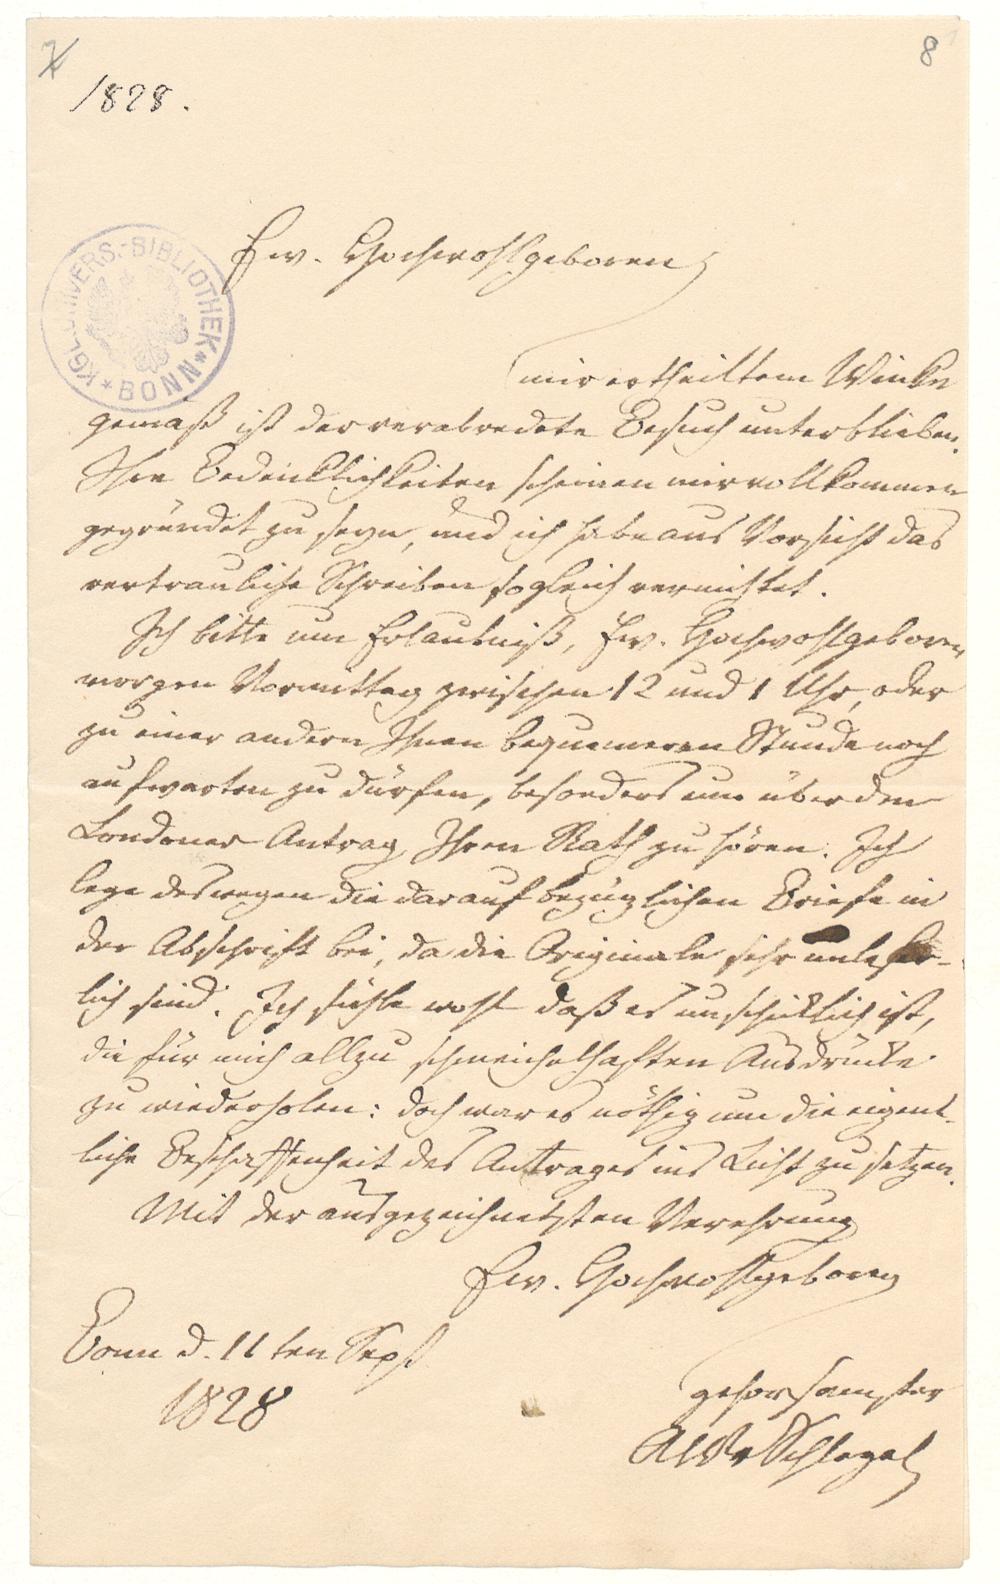 8
1828.
KGL. UNIVERS.-BIBLIOTHEK * BONN *
Ew. Hochwohlgeboren
mir ertheiltem Winke
gemäß ist der verabredete Besuch unterblieben.
Ihre Bedenklichkeiten scheinen mir vollkommen
gegründet zu seyn, und ich habe aus Vorsicht das
vertrauliche Schreiben sogleich vernichtet.
Ich bitte um Erlaubniß, Ew. Hochwohlgeboren
morgen Vormittag zwischen 12 und 1 Uhr, oder
zu einer andern Ihnen bequemeren Stunde noch
aufwarten zu dürfen, besonders um über den
Londoner Antrag Ihren Rath zu hören. Ich
lege deswegen die darauf bezüglichen Briefe in
der Abschrift bei, da die Originale sehr unleser-
lich sind. Ich fühle wohl daß es unschicklich ist,
die für mich allzu schmeichelhaften Ausdrücke
zu wiederholen: doch war es nöthig um die eigent-
liche Beschaffenheit des Antrages ins Licht zu setzen.
Mit der ausgezeichnetsten Verehrung
Ew. Hochwohlgeboren
Bonn d. 11ten Sept
1828
gehorsamster
AWv Schlegel